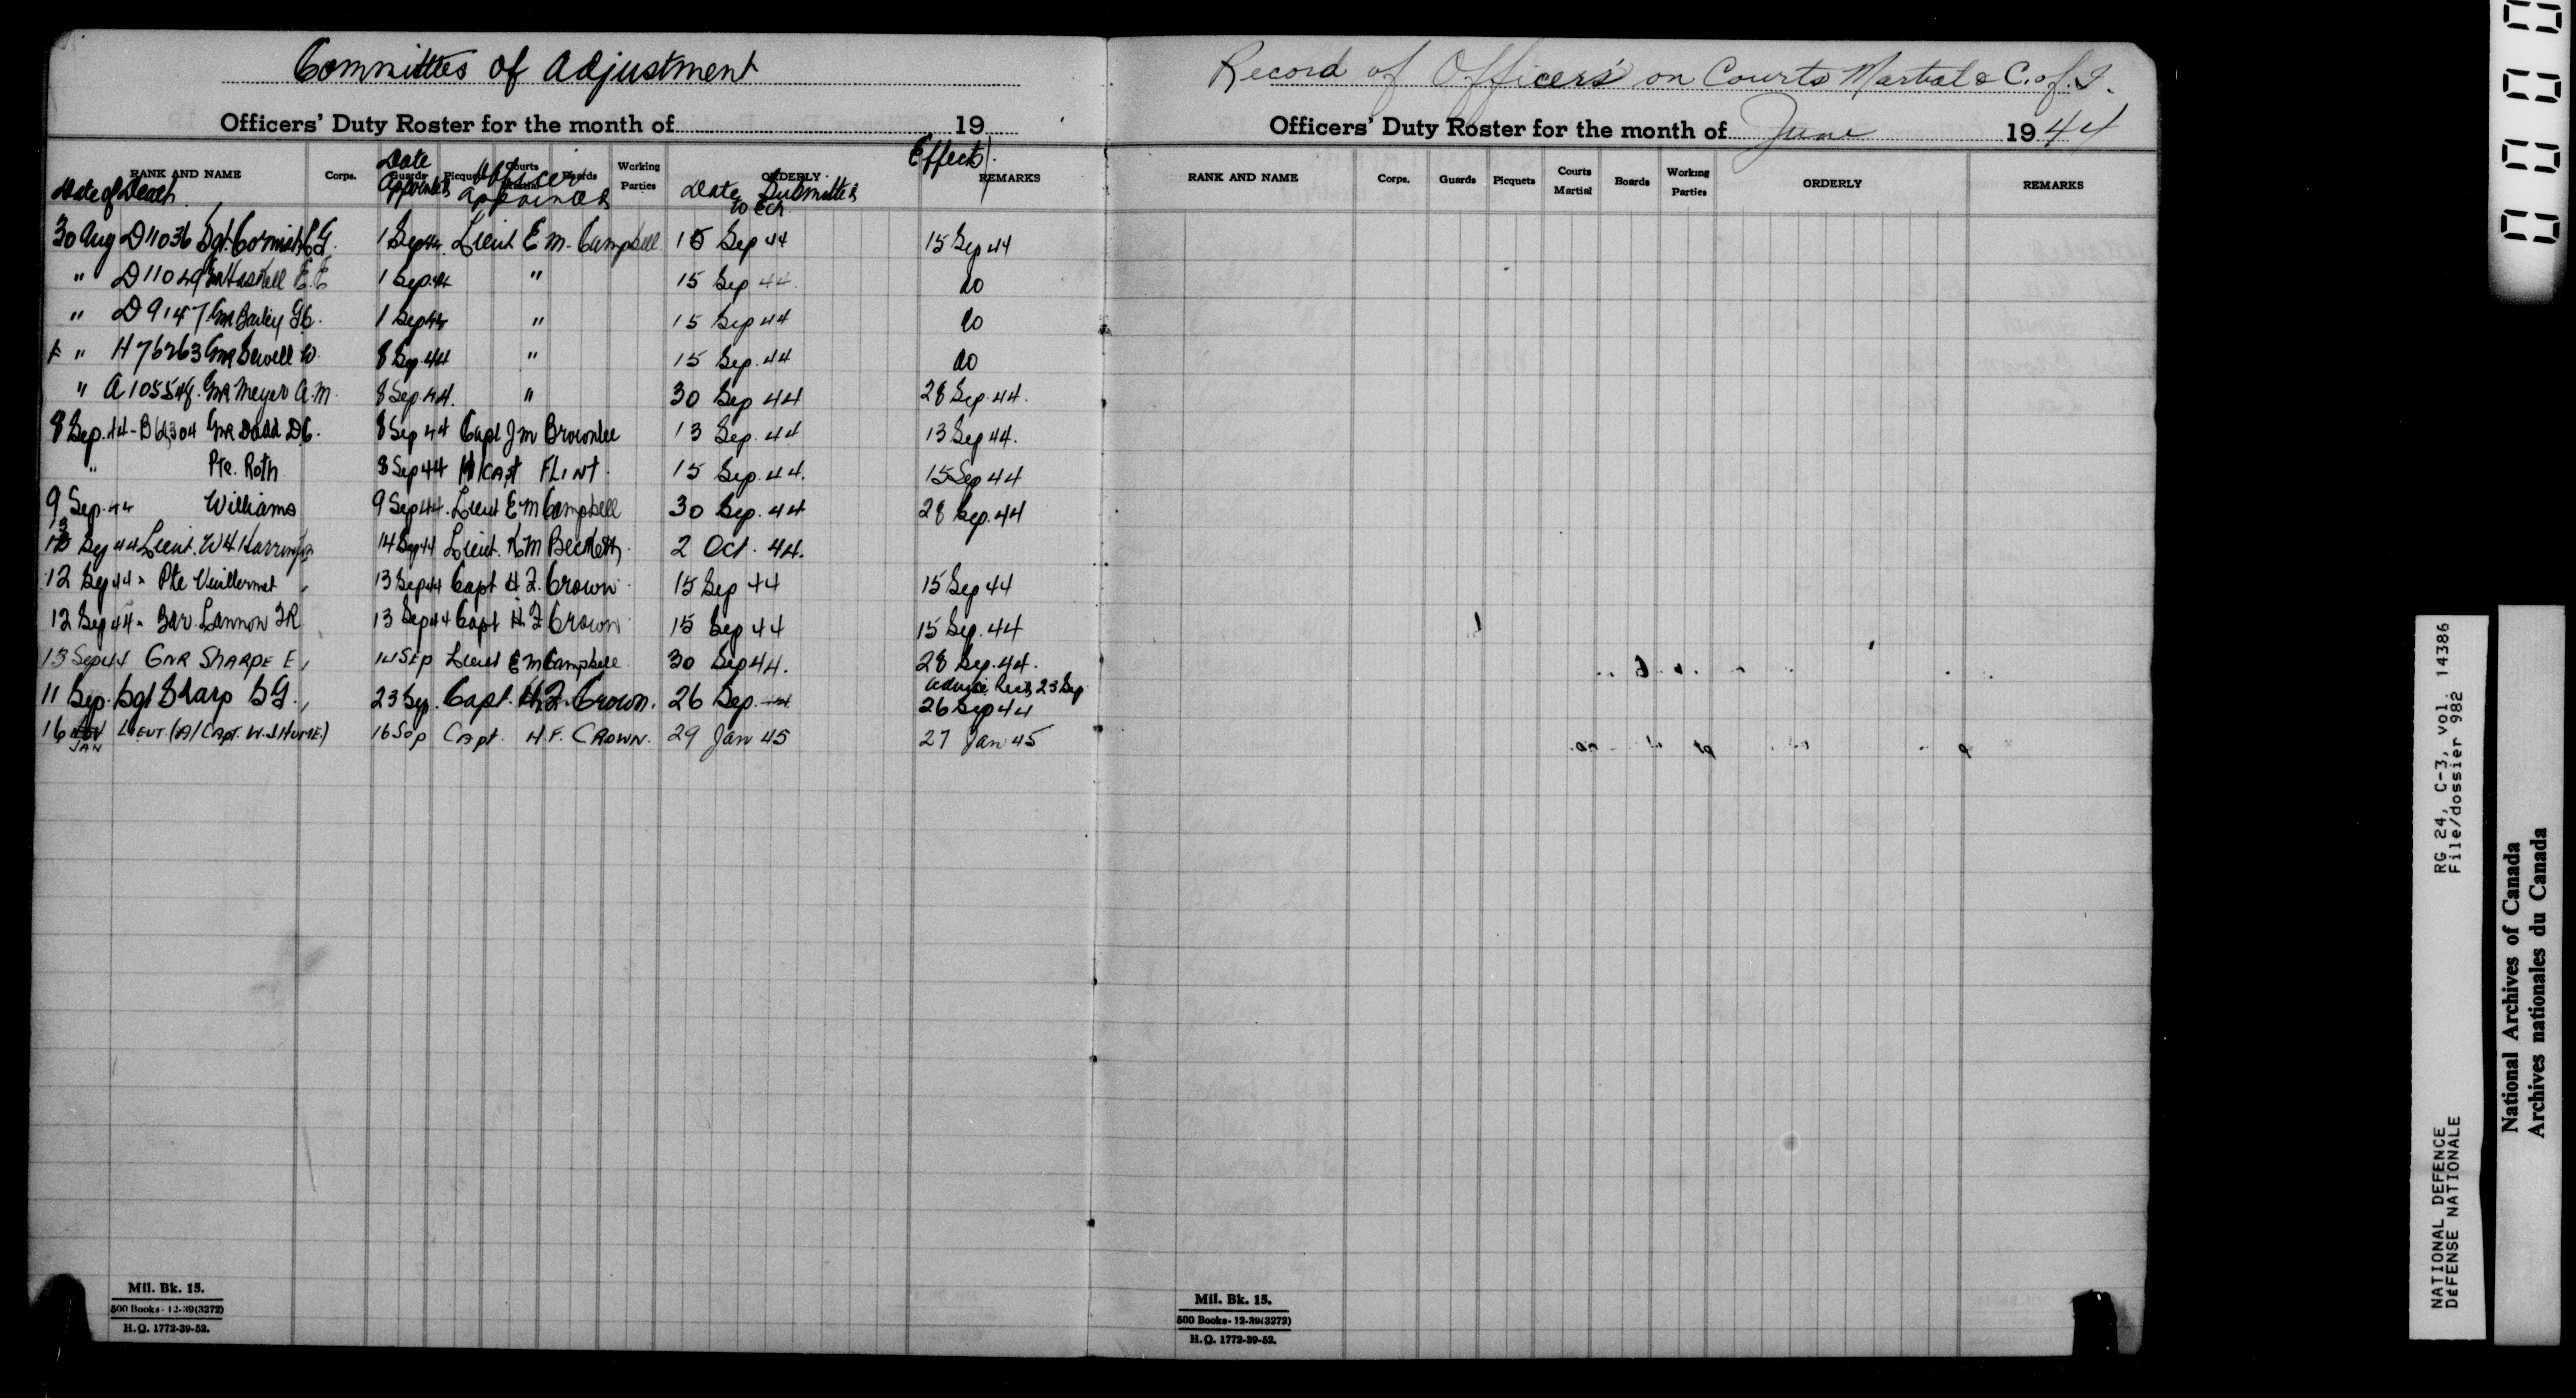 Committees of Adjustment
Officers' Duty Roster for the month of 19
RANK AND NAME Corps. Guards Picquets Courts Martial Boards Working Parties ORDERLY REMARKS
Date of Death Date Appointed Officer Appointed Date Submitted to Ech Effects
30 Aug D11036 Sgt. Cornish G. 1 Sep 44 Lieut E M. Campbell 15 Sep 44 15 Sep 44
" D11029 Gnr Haskell E.E 1 Sep. 44 " 15 Sep 44 do
" D9147 Gnr Bailey G.C. 1 Sep 44 " 15 Sep 44 do
" H76263 Gnr Sewell W. 8 Sep. 44 " 15 Sep. 44 do
" A105548. Gnr Meyer A.M. 8 Sep. 44. " 30 Sep 44 28 Sep. 44.
8 Sep. 44 - Gnr Dodd D.C. 8 Sep 44 Capt J M Brownlee 13 Sep. 44 13 Sep 44.
" Pte. Roth 8 Sep 44 H/Capt FLINT. 15 Sep. 44. 15 Sep 44
9 Sep. 44 Williams 9 Sep 44. Lieut E M Campbell 30 Sep. 44 28 Sep. 44
13 Sep 44 Lieut. W H Harrington 14 Sep 44 Lieut. K M Beckett 2 Oct. 44.
12 Sep 44 Pte Vuillermet 13 Sep 44 Capt H F. Crown 15 Sep 44 15 Sep 44
12 Sep 44 Bdr. Lannon J R 13 Sep 44 Capt H. F Crown 15 Sep 44 15 Sep. 44
13 Sep 44 GNR SHARPE E, 14 SEP Lieut E M Campbell 30 Sep 44. 28 Sep. 44.
11 Sep. Sgt Sharp S G. 23 Sep. Capt. H. F. Crown. 26 Sep. 44 Advice Recd 23 Sep
26 Sep 44
16 JAN LIEUT (A/CAPT. W. J HUME) 16 Sep Capt. H F. CROWN. 29 Jan 45 27 Jan 45
Mil. Bk. 15.
500 Books - 12-39 (3272)
H.Q. 1772-39-52.
Record of Officers' on Courts Martial & C. of. I.
Officers' Duty Roster for the month of June 1944
RANK AND NAME Corps. Guards Picquets Courts Martial Boards Working Parties ORDERLY REMARKS
Mil. Bk. 15.
500 Books - 12-39 (3272)
H.Q. 1772-39-52.
RG 24, C-3, vol. 14386
File/dossier 982
NATIONAL DEFENCE
DÉFENSE NATIONALE
National Archives of Canada
Archives nationales du Canada